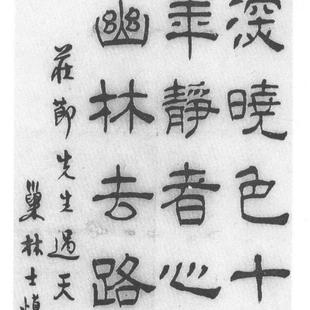 深曉色十
年靜者心
幽林去路
莊節先生過天
巢林士慎